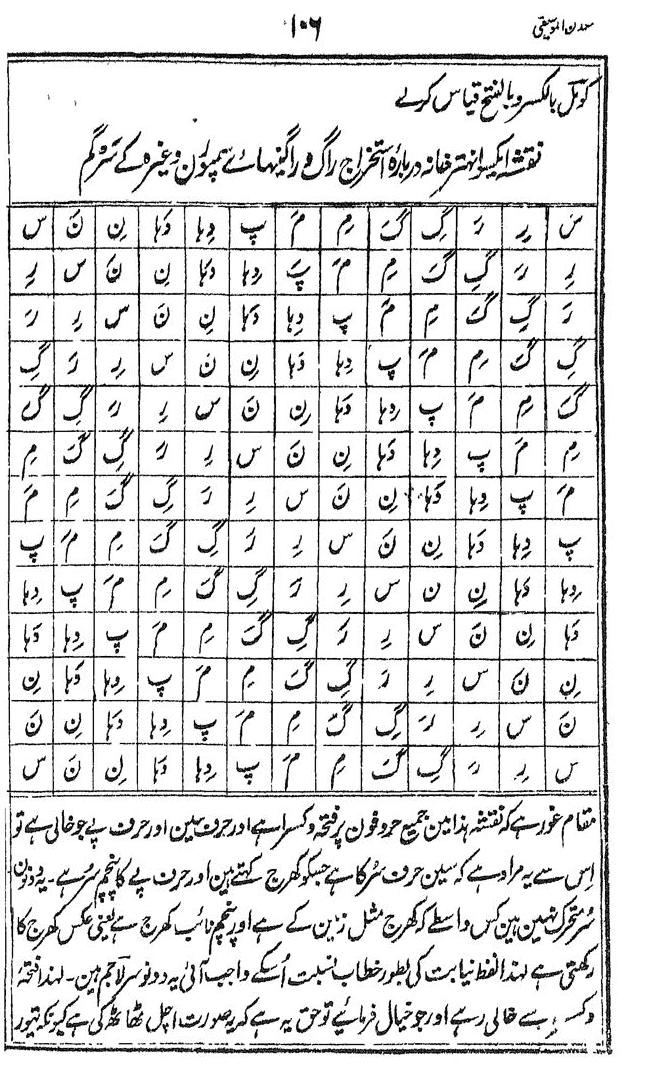 معدن الموسیقی
۱۰۶
کومل بالکسر و بالفتح قیاس کرلے
نقشہ ایکسوانہتر خانہ دربارۂ استخراج راگ و راگنیہائے سمپورن وغیرہ کے سرگم
سَ رِ رَ گِ گَ مِ مَ پ دِہا دَہا نِ نَ س
رِ رَ گِ گَ مِ مَ پ دِہا دَہا نِ نَ س رِ
رَ گِ گَ مِ مَ پ دِہا دَہا نِ نَ س رِ رَ
گِ گَ مِ مَ پ دِہا دَہا نِ نَ س رِ رَ گِ
گَ مِ مَ پ دِہا دَہا نِ نَ س رِ رَ گِ گَ
مِ مَ پ دِہا دَہا نِ نَ س رِ رَ گِ گَ مِ
مَ پ دِہا دَہا نِ نَ س رِ رَ گِ گَ مِ مَ
پ دِہا دَہا نِ نَ س رِ رَ گِ گَ مِ مَ پ
دِہا دَہا نِ نَ س رِ رَ گِ گَ مِ مَ پ دِہا
دَہا نِ نَ س رِ رَ گِ گَ مِ مَ پ دِہا دَہا
نِ نَ س رِ رَ گِ گَ مِ مَ پ دِہا دَہا نِ
نَ س رِ رَ گِ گَ مِ مَ پ دِہا دَہا نِ نَ
س رِ رَ گِ گَ مِ مَ پ دِہا دَہا نِ نَ س
مقام غور ہے کہ نقشہ ہذا مین جمیع حروفون پر فتحہ و کسرا ہے اور حرف سین اور حرف پے جو خالی ہے تو
اِس سے یہ مراد ہے کہ سین حرف سُر کا ہے جسکو کھرج کہتے ہین اور حرف پے کا پنچم سُر ہے۔ یہ دونون
سُر متحرک نہین ہین کس واسطے کہ کھرج مثل زمین کے ہے اور پنچم نائب کھرج ہے یعنی عکس کھرج کا
رکھتی ہے لہذا لفظ نیابت کی بطور خطاب بنسبت اُسکے واجب آئی یہ دونو سر لاجم ہین۔ لہذا فتحہ
و کسرہ سے خالی رہے اور جو خیال فرمائیے تو حق یہ ہے کہ یہ صورت اچل ٹھاٹھ کی ہے کیونکہ تیور